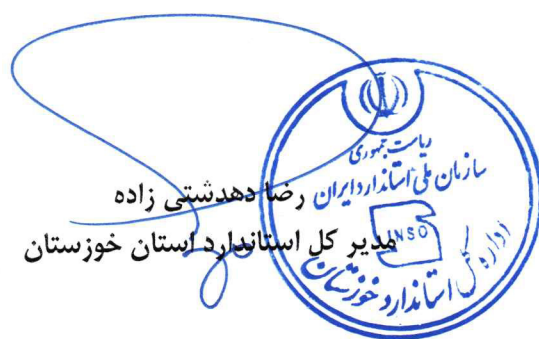 رضا دهدشتی زاده
مدیر کل استاندارد استان خوزستان
ریاست جمهوری
سازمان ملی استاندارد ایران
INSO
اداره کل استاندارد خوزستان